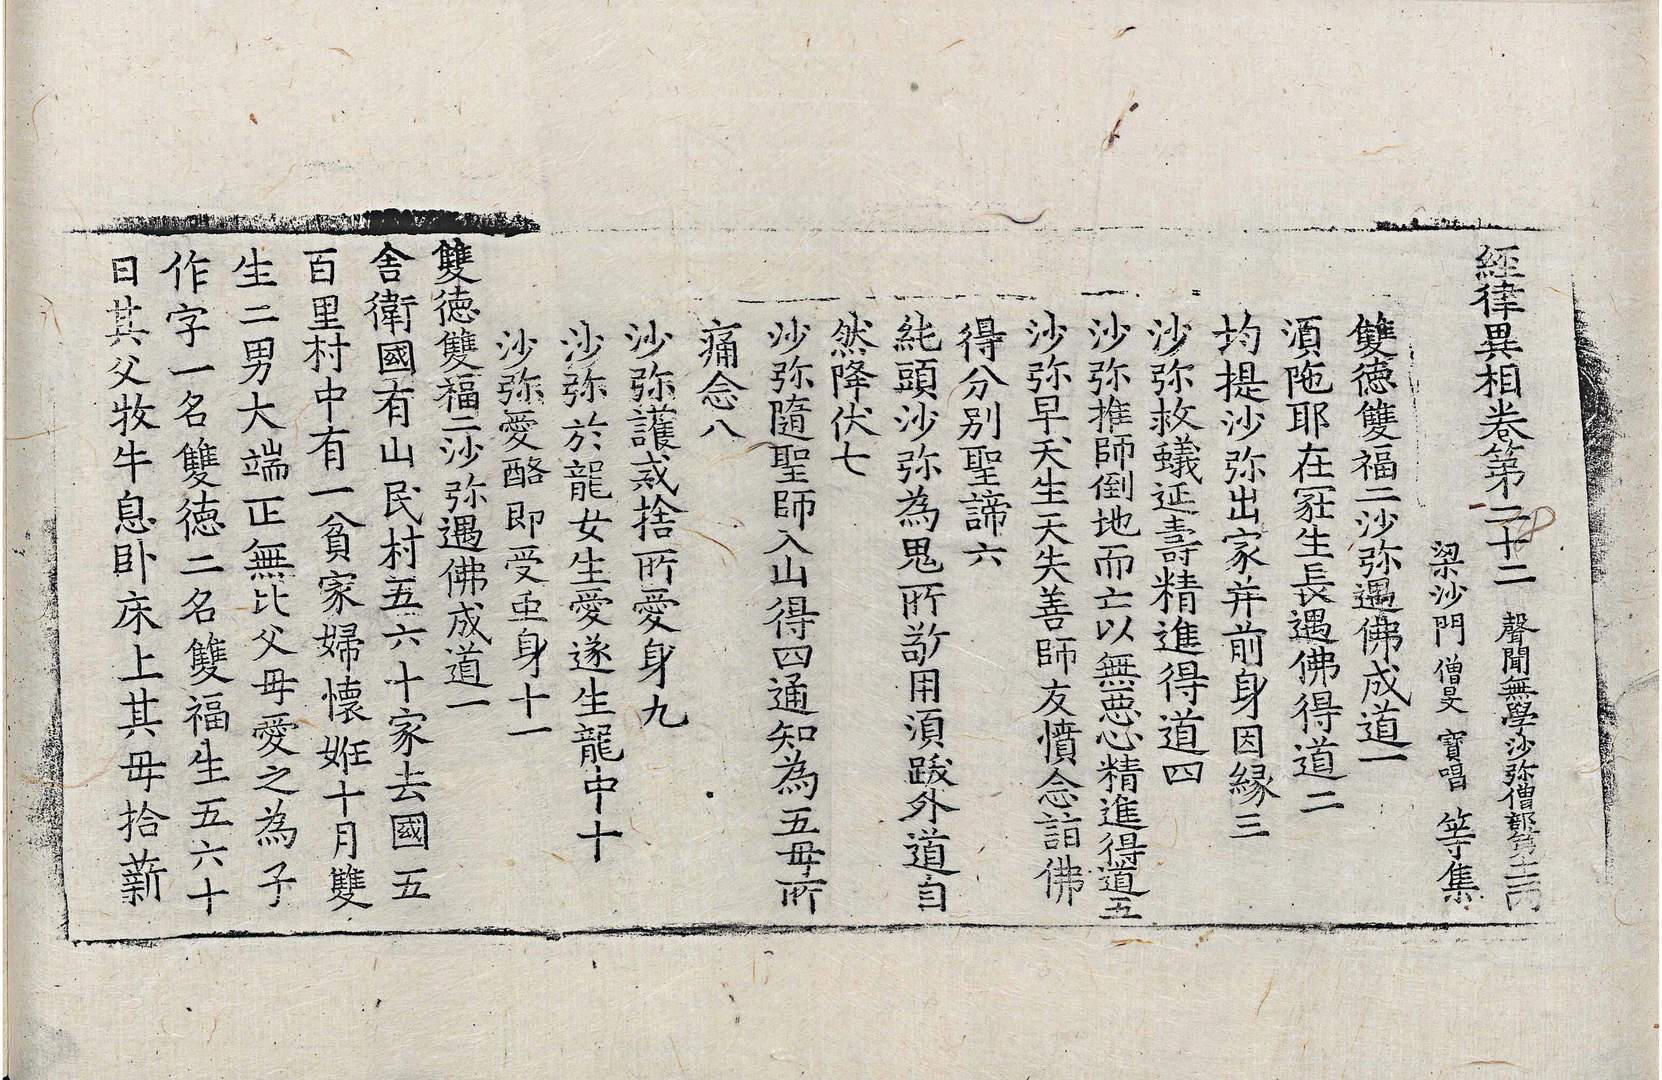 經律異相卷第二十二 聲聞無學沙弥僧部第十一 丙
梁沙門 僧旻 寶唱 等集
雙德雙福二沙弥遇佛成道一
須陁耶在冡生長遇佛得道二
均提沙弥出家并前身因緣三
沙弥救蟻延壽精進得道四
沙弥推師倒地而亡以無惡心精進得道五
沙弥早夭生天失善師友憤念詣佛
得分别聖諦六
純頭沙弥為鬼所敬用須跋外道自
然降伏七
沙弥隨聖師入山得四通知為五母所
痛念八
沙弥護戒捨所愛身九
沙弥於龍女生愛遂生龍中十
沙弥愛酪即受虫身十一
雙德雙福二沙弥遇佛成道一
舍衛國有山民村五六十家去國五
百里村中有一貧家婦懷姙十月雙
生二男大端正無比父母愛之為子
作字一名雙德二名雙福生五六十
日其父牧牛息卧床上其母拾薪